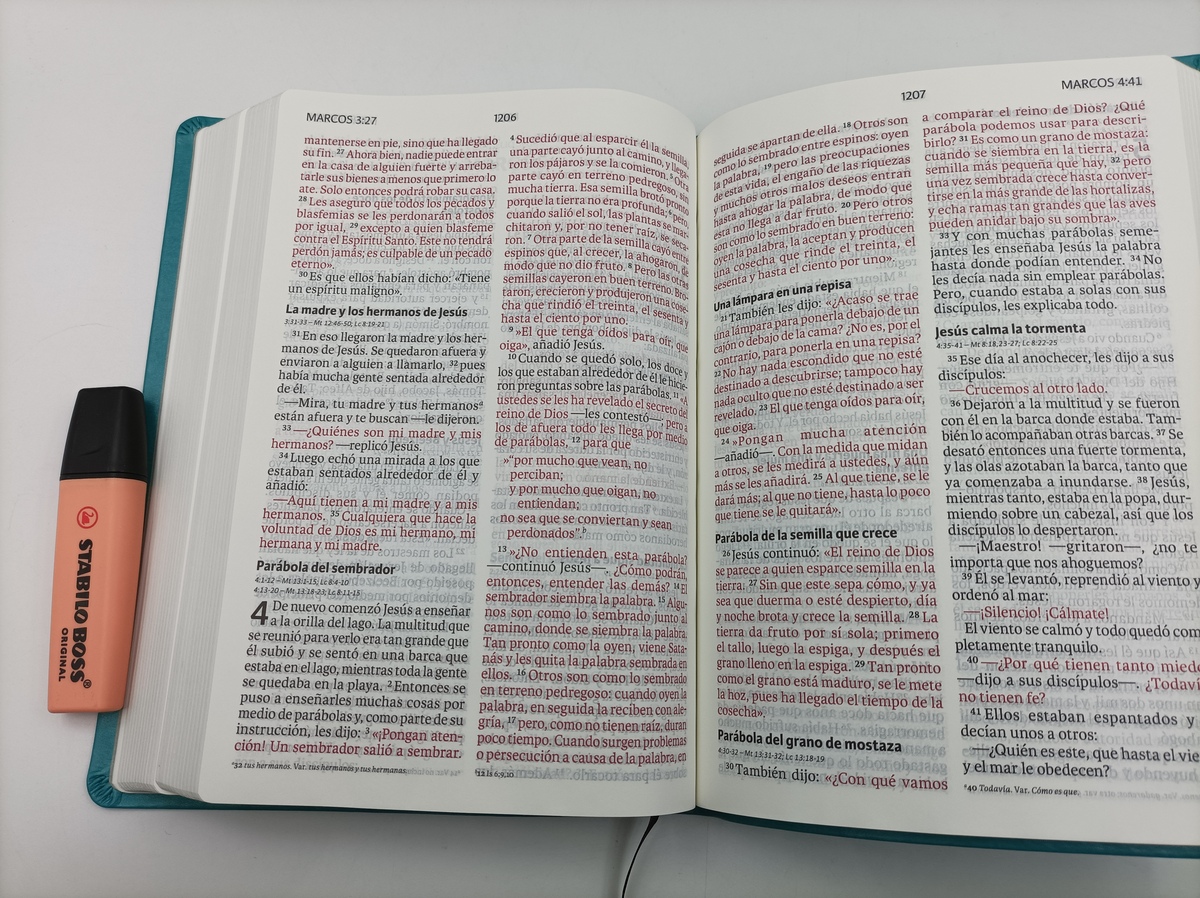 MARCOS 3:27
1206
mantenerse en pie, sino que ha llegado
su fin. 27 Ahora bien, nadie puede entrar
en la casa de alguien fuerte y arreba-
tarle sus bienes a menos que primero lo
ate. Solo entonces podrá robar su casa.
28 Les aseguro que todos los pecados y
blasfemias se les perdonarán a todos
por igual, 29 excepto a quien blasfeme
contra el Espíritu Santo. Este no tendrá
perdón jamás; es culpable de un pecado
eterno».
30 Es que ellos habían dicho: «Tiene
un espíritu maligno».
La madre y los hermanos de Jesús
3:31-33 – Mt 12:46-50; Lc 8:19-21
31 En eso llegaron la madre y los her-
manos de Jesús. Se quedaron afuera y
enviaron a alguien a llamarlo, 32 pues
había mucha gente sentada alrededor
de él.
—Mira, tu madre y tus hermanos a
están afuera y te buscan —le dijeron.
33 —¿Quiénes son mi madre y mis
hermanos? —replicó Jesús.
34 Luego echó una mirada a los que
estaban sentados alrededor de él y
añadió:
—Aquí tienen a mi madre y a mis
hermanos. 35 Cualquiera que hace la
voluntad de Dios es mi hermano, mi
hermana y mi madre.
Parábola del sembrador
4:1-12 – Mt 13:1-15; Lc 8:4-10
4:13-20 – Mt 13:18-23; Lc 8:11-15
4 De nuevo comenzó Jesús a enseñar
a la orilla del lago. La multitud que
se reunió para verlo era tan grande que
él subió y se sentó en una barca que
estaba en el lago, mientras toda la gente
se quedaba en la playa. 2 Entonces se
puso a enseñarles muchas cosas por
medio de parábolas y, como parte de su
instrucción, les dijo: 3 «¡Pongan aten-
ción! Un sembrador salió a sembrar.
a 32 tus hermanos. Var. tus hermanos y tus hermanas.
4 Sucedió que al esparcir él la semilla,
una parte cayó junto al camino, y llega-
ron los pájaros y se la comieron. 5 Otra
parte cayó en terreno pedregoso, sin
mucha tierra. Esa semilla brotó pronto
porque la tierra no era profunda; 6 pero,
cuando salió el sol, las plantas se mar-
chitaron y, por no tener raíz, se seca-
ron. 7 Otra parte de la semilla cayó entre
espinos que, al crecer, la ahogaron, de
modo que no dio fruto. 8 Pero las otras
semillas cayeron en buen terreno. Bro-
taron, crecieron y produjeron una cose-
cha que rindió el treinta, el sesenta y
hasta el ciento por uno.
9 »El que tenga oídos para oír, que
oiga», añadió Jesús.
10 Cuando se quedó solo, los doce y
los que estaban alrededor de él le hicie-
ron preguntas sobre las parábolas. 11 «A
ustedes se les ha revelado el secreto del
reino de Dios —les contestó—; pero a
los de afuera todo les llega por medio
de parábolas, 12 para que
»“por mucho que vean, no
perciban;
y por mucho que oigan, no
entiendan;
no sea que se conviertan y sean
perdonados”. b
13 »¿No entienden esta parábola?
—continuó Jesús—. ¿Cómo podrán,
entonces, entender las demás? 14 El
sembrador siembra la palabra. 15 Algu-
nos son como lo sembrado junto al
camino, donde se siembra la palabra.
Tan pronto como la oyen, viene Sata-
nás y les quita la palabra sembrada en
ellos. 16 Otros son como lo sembrado
en terreno pedregoso: cuando oyen la
palabra, en seguida la reciben con ale-
gría, 17 pero, como no tienen raíz, duran
poco tiempo. Cuando surgen problemas
o persecución a causa de la palabra, en
b 12 Is 6:9,10
1207
MARCOS 4:41
seguida se apartan de ella. 18 Otros son
como lo sembrado entre espinos: oyen
la palabra, 19 pero las preocupaciones
de esta vida, el engaño de las riquezas
y muchos otros malos deseos entran
hasta ahogar la palabra, de modo que
esta no llega a dar fruto. 20 Pero otros
son como lo sembrado en buen terreno:
oyen la palabra, la aceptan y producen
una cosecha que rinde el treinta, el
sesenta y hasta el ciento por uno».
Una lámpara en una repisa
21 También les dijo: «¿Acaso se trae
una lámpara para ponerla debajo de un
cajón o debajo de la cama? ¿No es, por el
contrario, para ponerla en una repisa?
22 No hay nada escondido que no esté
destinado a descubrirse; tampoco hay
nada oculto que no esté destinado a ser
revelado. 23 El que tenga oídos para oír,
que oiga.
24 »Pongan mucha atención
—añadió—. Con la medida que midan
a otros, se les medirá a ustedes, y aún
más se les añadirá. 25 Al que tiene, se le
dará más; al que no tiene, hasta lo poco
que tiene se le quitará».
Parábola de la semilla que crece
26 Jesús continuó: «El reino de Dios
se parece a quien esparce semilla en la
tierra. 27 Sin que este sepa cómo, y ya
sea que duerma o esté despierto, día
y noche brota y crece la semilla. 28 La
tierra da fruto por sí sola; primero
el tallo, luego la espiga, y después el
grano lleno en la espiga. 29 Tan pronto
como el grano está maduro, se le mete
la hoz, pues ha llegado el tiempo de la
cosecha».
Parábola del grano de mostaza
4:30-32 – Mt 13:31-32; Lc 13:18-19
30 También dijo: «¿Con qué vamos
a comparar el reino de Dios? ¿Qué
parábola podemos usar para descri-
birlo? 31 Es como un grano de mostaza:
cuando se siembra en la tierra, es la
semilla más pequeña que hay, 32 pero
una vez sembrada crece hasta conver-
tirse en la más grande de las hortalizas,
y echa ramas tan grandes que las aves
pueden anidar bajo su sombra».
33 Y con muchas parábolas seme-
jantes les enseñaba Jesús la palabra
hasta donde podían entender. 34 No
les decía nada sin emplear parábolas.
Pero, cuando estaba a solas con sus
discípulos, les explicaba todo.
Jesús calma la tormenta
4:35-41 – Mt 8:18,23-27; Lc 8:22-25
35 Ese día al anochecer, les dijo a sus
discípulos:
—Crucemos al otro lado.
36 Dejaron a la multitud y se fueron
con él en la barca donde estaba. Tam-
bién lo acompañaban otras barcas. 37 Se
desató entonces una fuerte tormenta,
y las olas azotaban la barca, tanto que
ya comenzaba a inundarse. 38 Jesús,
mientras tanto, estaba en la popa, dur-
miendo sobre un cabezal, así que los
discípulos lo despertaron.
—¡Maestro! —gritaron—, ¿no te
importa que nos ahoguemos?
39 Él se levantó, reprendió al viento y
ordenó al mar:
—¡Silencio! ¡Cálmate!
El viento se calmó y todo quedó com
pletamente tranquilo.
40 —¿Por qué tienen tanto miedo
—dijo a sus discípulos—. ¿Todaví
no tienen fe?
41 Ellos estaban espantados y
decían unos a otros:
—¿Quién es este, que hasta el vie
y el mar le obedecen?
a 40 Todavía. Var. Cómo es que.
STABILO BOSS®
ORIGINAL